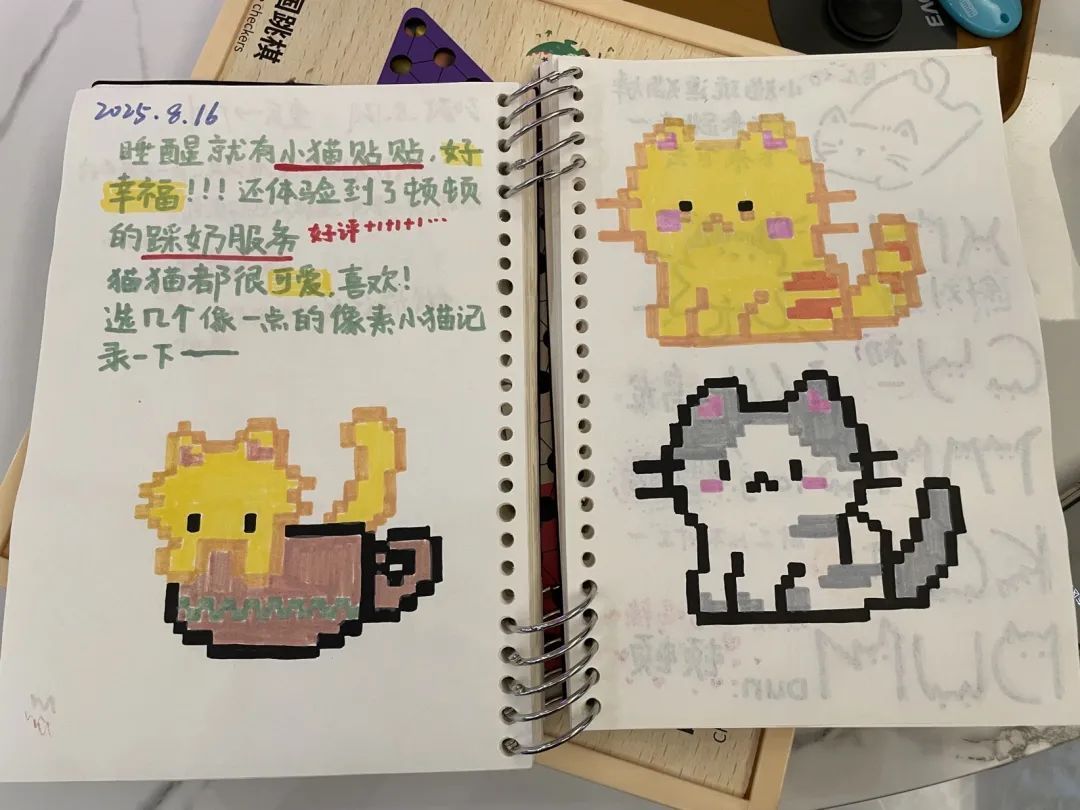 2025.8.16
睡醒就有小猫贴贴，好
幸福!!! 还体验到了顿顿
的踩奶服务 好评+1+1+1…
猫猫都很可爱，喜欢!
选几个像一点的像素小猫记
录一下——
国跳棋
checkers
EVE